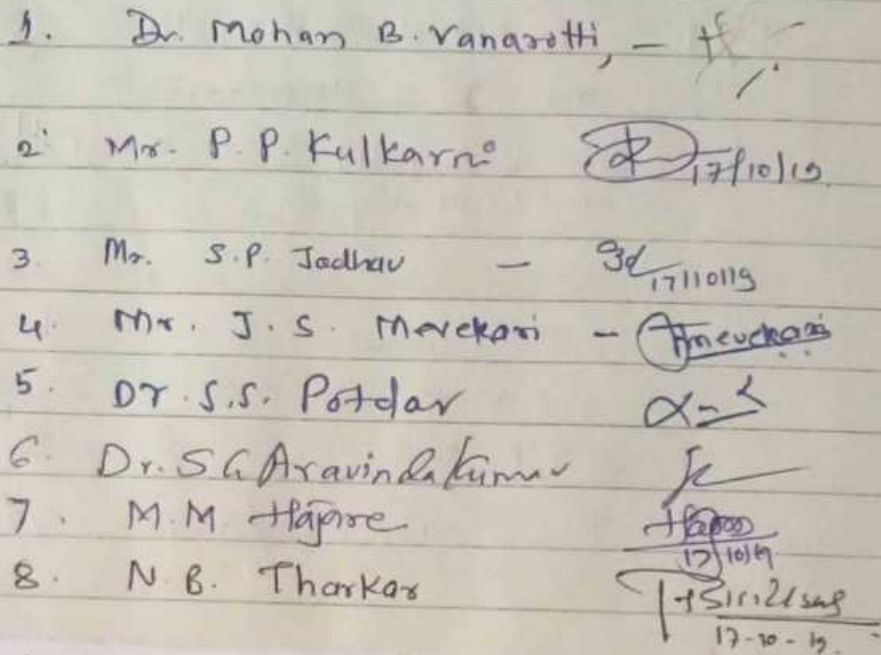 1. Dr. Mohan B. Vanarotti, -
2. Mr. P. P. Kulkarni 17/10/19
3. Mr. S.P. Jadhav - 17/10/19
4. Mr. J. S. Mevekari -
5. Dr. S.S. Potdar
6. Dr. S G Aravinda Kumar
7. M.M. Hajare 17/10/19
8. N. B. Tharkar 17-10-19